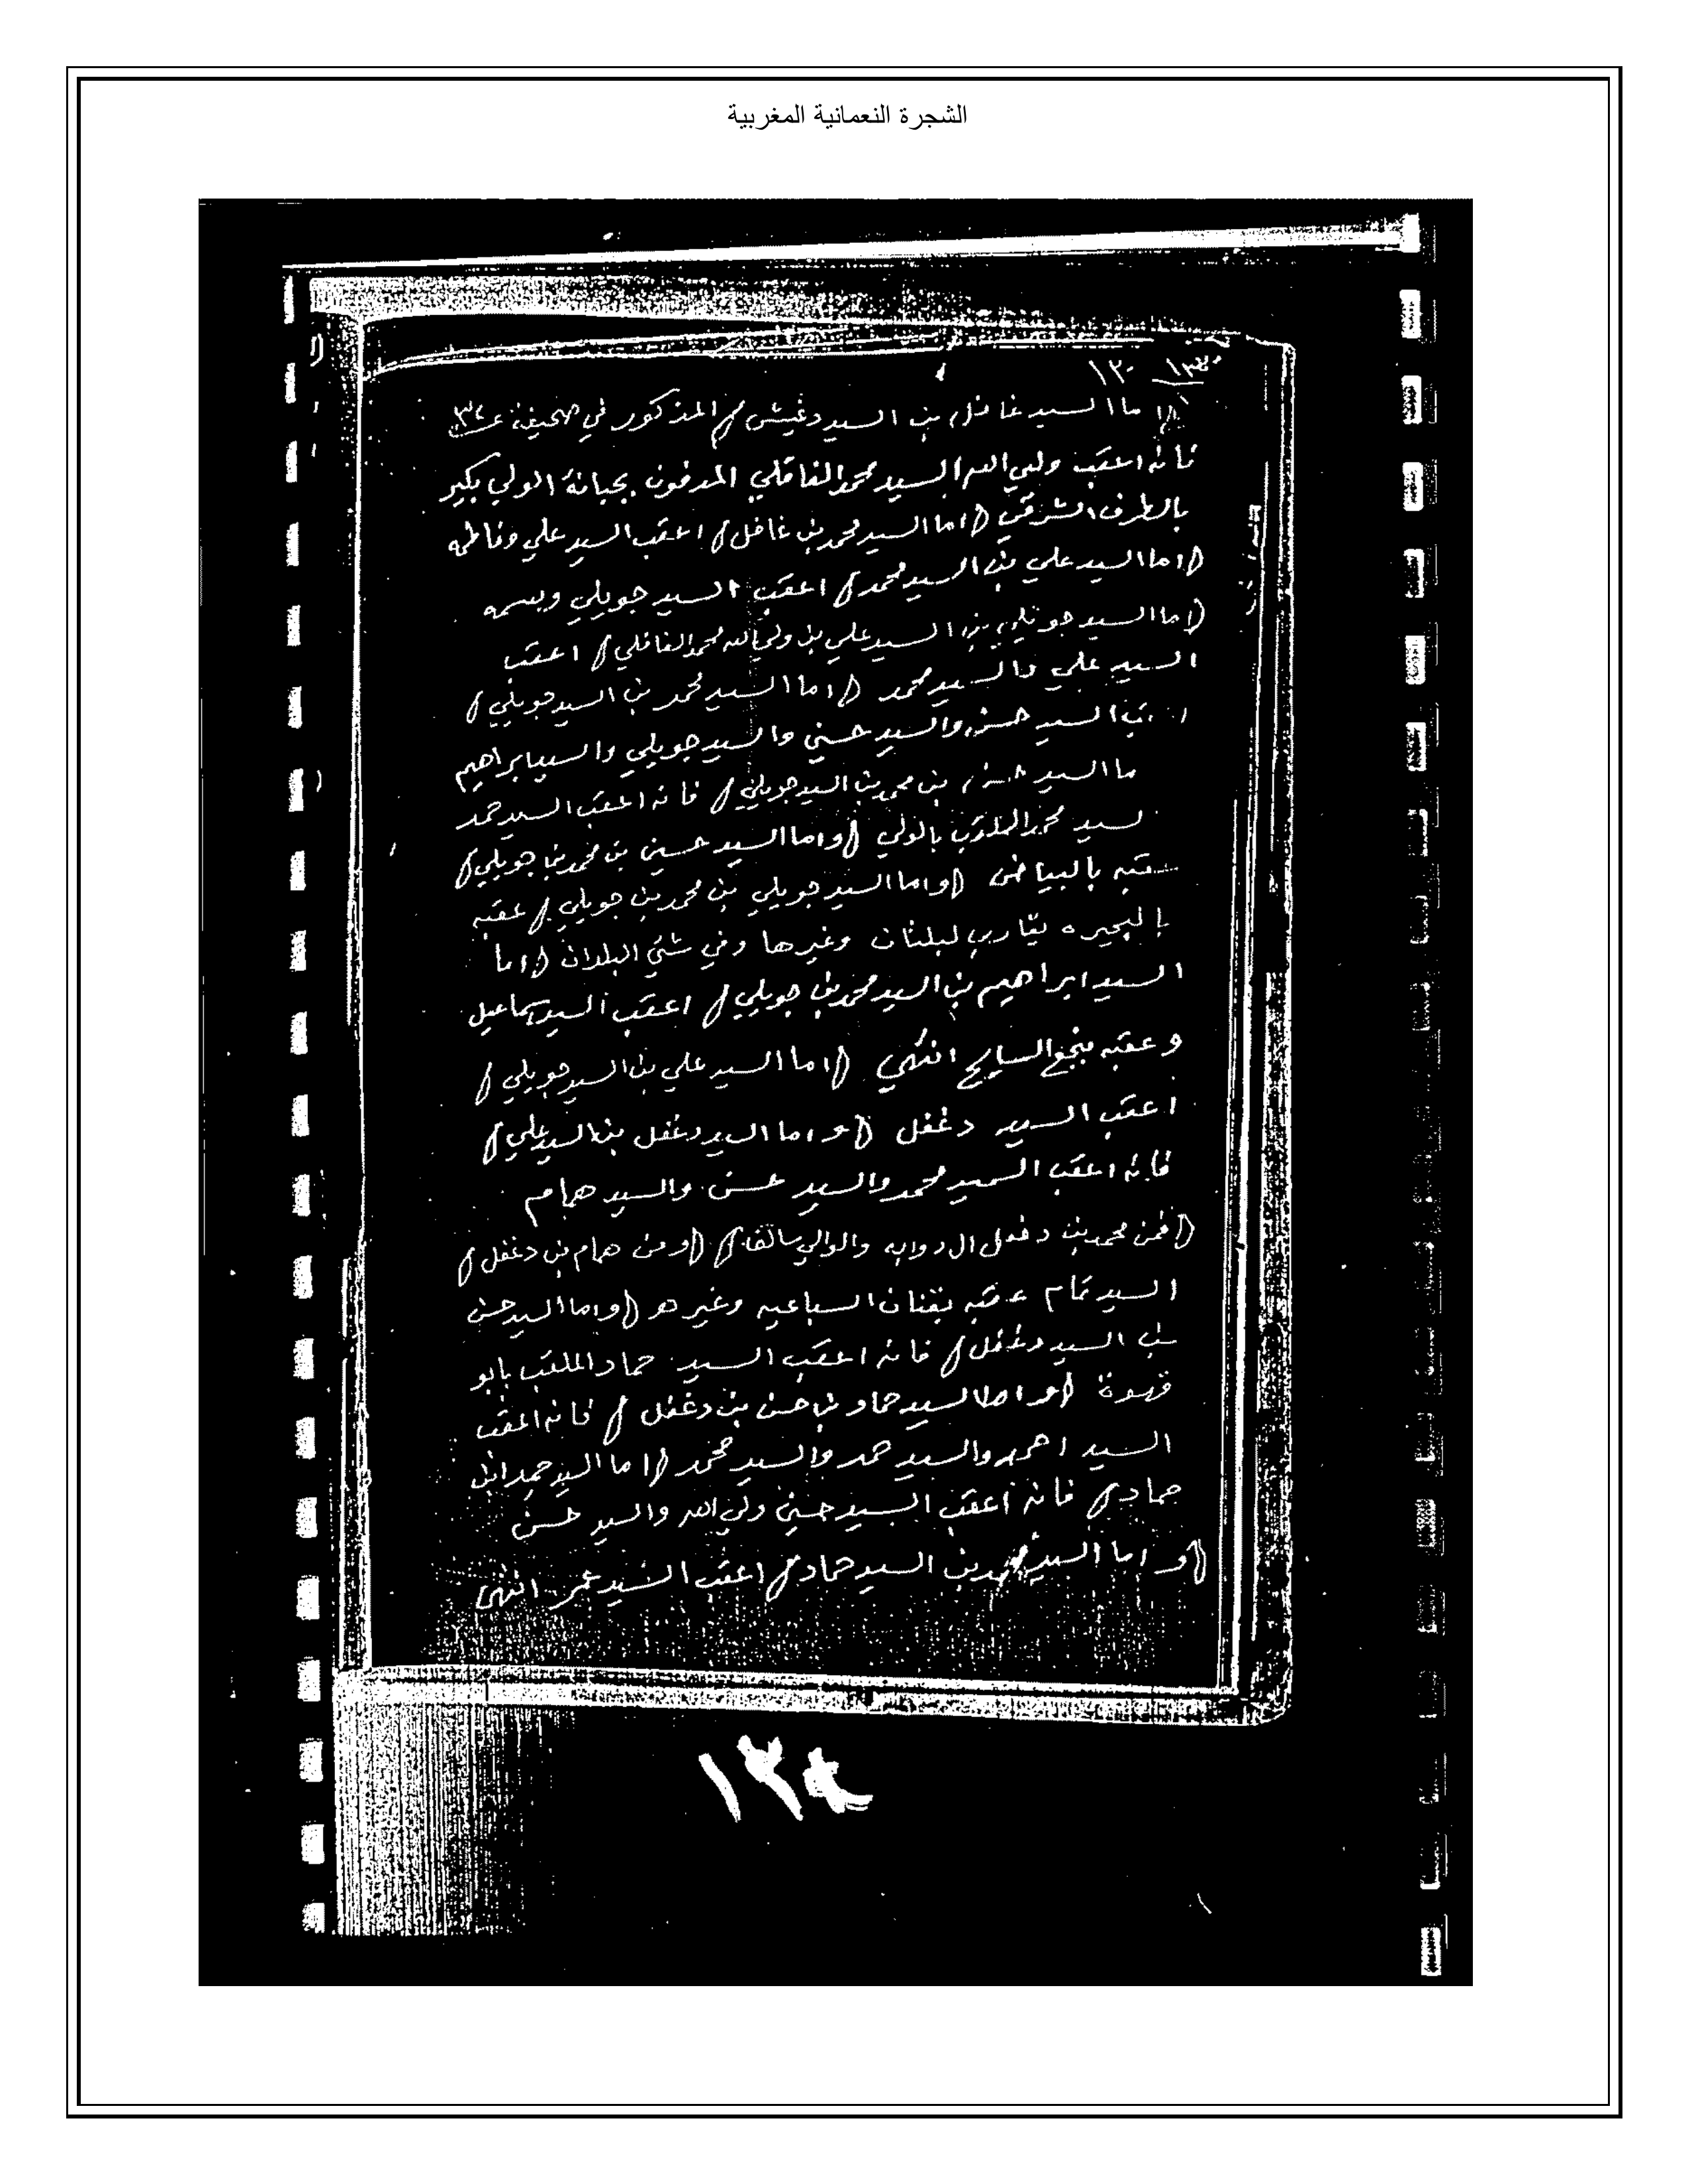 الشجرة النعمانية المغربية
١٢٠
اما السيد غافل بن السيد دغيش المذكور في صحيفة
فانه اعقب ولي الله السيد محمد الغافلي المدفون بجبانة الولي بكير
بالطرف الشرقي (اما السيد محمد بن غافل) اعقب السيد علي وفاطمه
(اما السيد علي بن السيد محمد) اعقب السيد جويلي وبسمه
(اما السيد جويلي بن السيد علي بن ولي الله محمد الغافلي) اعقب
السيد علي والسيد محمد (اما السيد محمد بن السيد جويلي)
السيد حسن والسيد حسني والسيد جويلي والسيد ابراهيم
ما السيد بن محمد بن السيد جويلي) فانه اعقب السيد حمد
لسيد محمد الملقب بالولي (واما السيد حسين بن محمد بن جويلي)
عقبه بالبياض (واما السيد جويلي بن محمد بن جويلي) عقبه
بالبحيره وغيرها وفي شتي البلدان (اما
السيد ابراهيم بن السيد محمد بن جويلي) اعقب السيد اسماعيل
وعقبه بنجع السايح انتهي (اما السيد علي بن السيد جويلي)
اعقب السيد دغفل (واما السيد دغفل بن السيد علي)
فانه اعقب السيد محمد والسيد حسن والسيد همام
(فمن محمد بن دغفل ال (ومن همام بن دغفل)
السيد تمام عقبه السباعيه وغيرهو (واما السيد حسن
بن السيد دغفل) فانه اعقب السيد حماد الملقب بابو
قهوة (واما السيد حماد بن حسن بن دغفل) فانه اعقب
السيد احمد والسيد حمد والسيد محمد (اما السيد حمد ابن
حماد) فانه اعقب السيد حسين ولي الله والسيد حسن
(واما السيد بن السيد حماد) اعقب السيد عمر انتهى